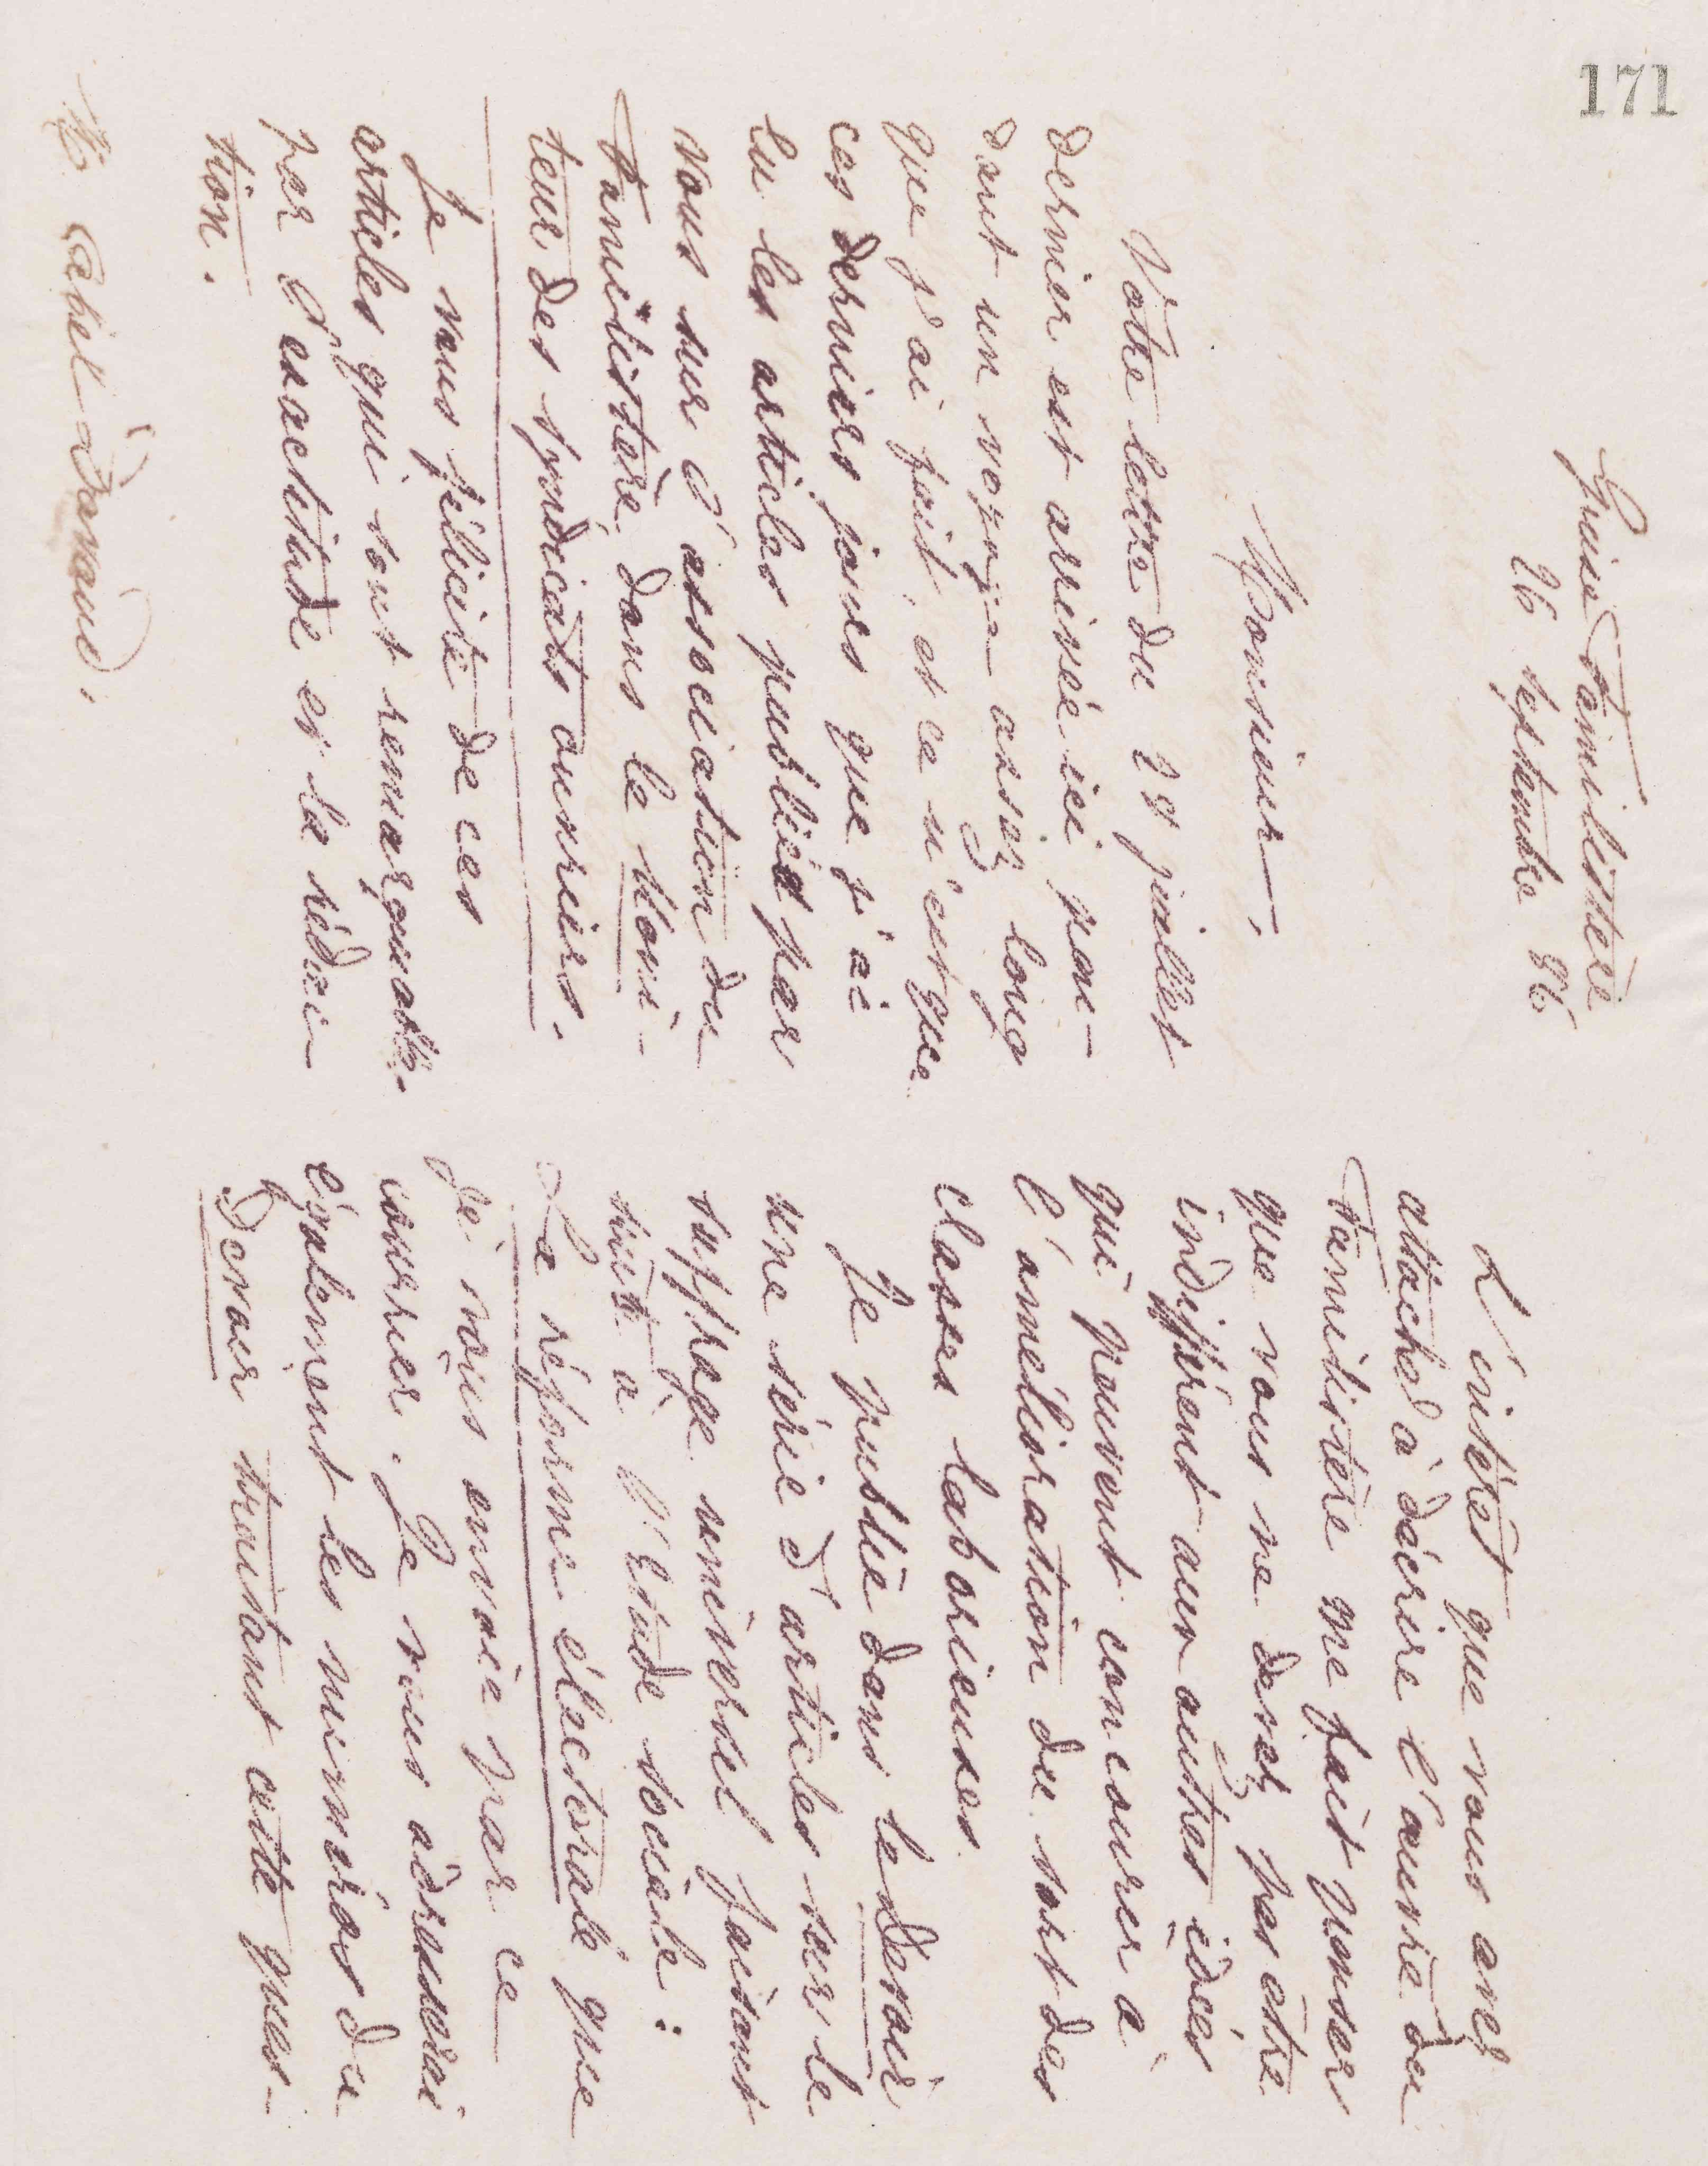 171
Guise Familistère
26 septembre 86
Monsieur,
Votre lettre du 28 juillet
dernier est arrivée ici pen-
dant un voyage assez long
que j'ai fait, et ce n'est que
ces derniers jours que j'ai
lu les articles publiés par
vous sur l'association du
Familistère dans le Moni-
teur des syndicats ouvriers.
Je vous félicite de ces
articles qui sont remarquables
par l'exactitude et la rédac-
tion.
M. Abel Davaud.
L'intérêt que vous avez
attaché à décrire l'œuvre du
Familistère me fait penser
que vous ne devez pas être
indifférent aux autres idées
qui peuvent concourir à
l'amélioration du sort des
classes laborieuses.
Je publie dans le Devoir
une série d'articles sur le
suffrage universel faisant
suite à l'étude sociale :
La réforme électorale que
je vous envoie par ce
courrier. Je vous adresserai
également les numéros du
Devoir traitant cette ques-